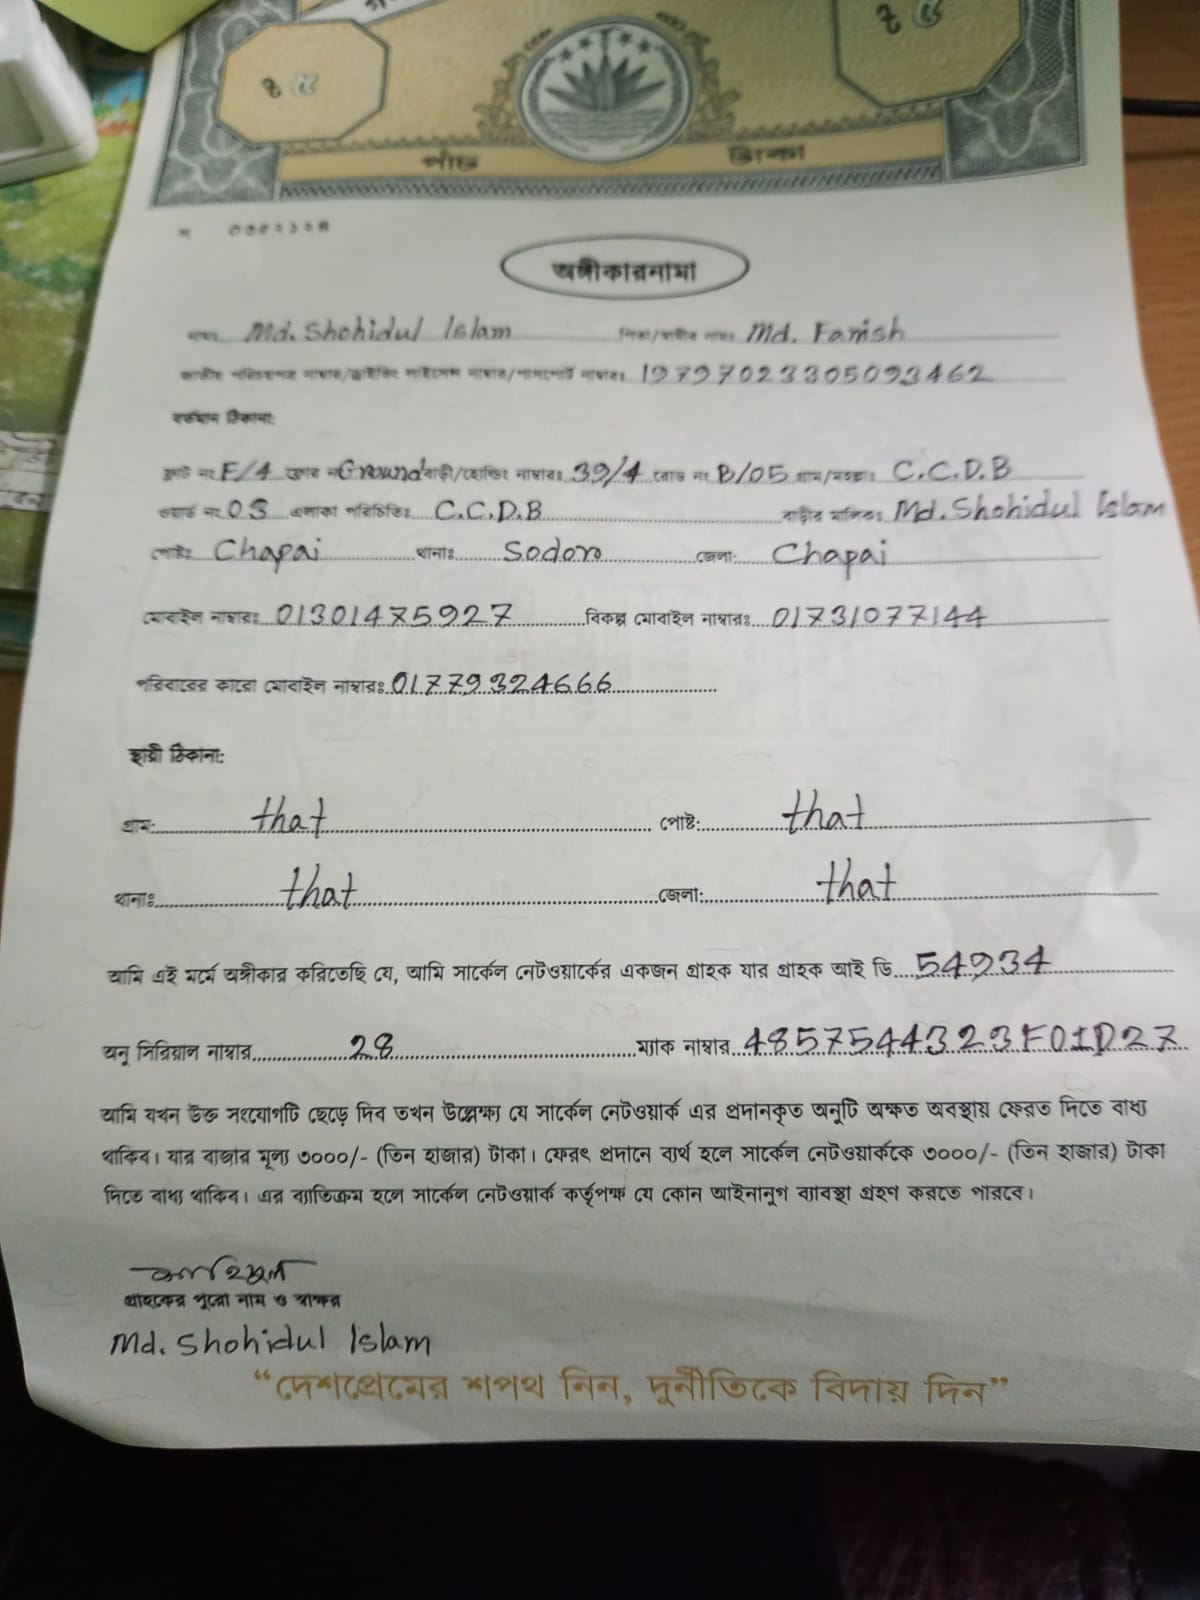 ৳ ৫
৳ ৫
পাঁচ টাকা
অঙ্গীকারনামা
নামঃ Md. Shohidul Islam পিতা/স্বামীর নামঃ Md. Famish
জাতীয় পরিচয়পত্র নাম্বার/ড্রাইভিং লাইসেন্স নাম্বার/পাসপোর্ট নাম্বারঃ 19797023305093462
বর্তমান ঠিকানা:
ফ্লাট নং F/4 ফ্লোর নং Ground বাড়ী/হোল্ডিং নাম্বারঃ 39/4 রোড নং B/05 গ্রাম/মহল্লাঃ C.C.D.B
ওয়ার্ড নং 03 এলাকা পরিচিতিঃ C.C.D.B বাড়ীর মালিকঃ Md. Shohidul Islam
পোষ্টঃ Chapai থানাঃ Sodoro জেলা: Chapai
মোবাইল নাম্বারঃ 01301475927 বিকল্প মোবাইল নাম্বারঃ 01731077144
পরিবারের কারো মোবাইল নাম্বারঃ 01779324666
স্থায়ী ঠিকানা:
গ্রাম: that পোষ্ট: that
থানাঃ that জেলা: that
আমি এই মর্মে অঙ্গীকার করিতেছি যে, আমি সার্কেল নেটওয়ার্কের একজন গ্রাহক যার গ্রাহক আই ডি 54934
অনু সিরিয়াল নাম্বার 28 ম্যাক নাম্বার 4857544323F01D27
আমি যখন উক্ত সংযোগটি ছেড়ে দিব তখন উল্লেক্ষ্য যে সার্কেল নেটওয়ার্ক এর প্রদানকৃত অনুটি অক্ষত অবস্থায় ফেরত দিতে বাধ্য
থাকিব। যার বাজার মূল্য ৩০০০/- (তিন হাজার) টাকা। ফেরৎ প্রদানে ব্যর্থ হলে সার্কেল নেটওয়ার্ককে ৩০০০/- (তিন হাজার) টাকা
দিতে বাধ্য থাকিব। এর ব্যাতিক্রম হলে সার্কেল নেটওয়ার্ক কর্তৃপক্ষ যে কোন আইনানুগ ব্যাবস্থা গ্রহণ করতে পারবে।
গ্রাহকের পুরো নাম ও স্বাক্ষর
Md. Shohidul Islam
“দেশপ্রেমের শপথ নিন, দুর্নীতিকে বিদায় দিন”